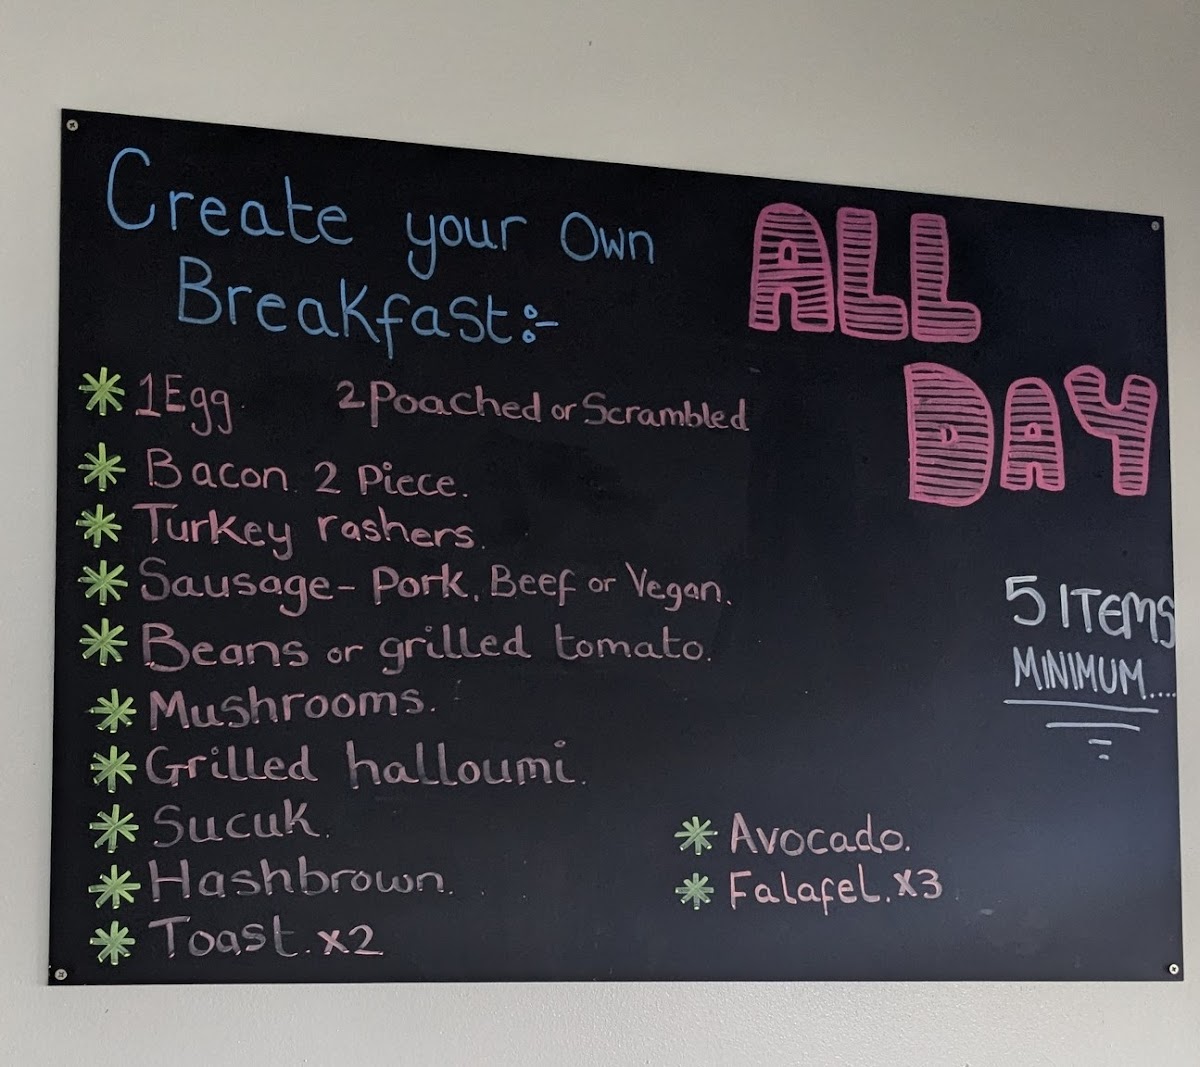 Create your Own
Breakfast:-
ALL
DAY
* 1Egg. 2 Poached or Scrambled
* Bacon. 2 Piece.
* Turkey rashers.
* Sausage - Pork, Beef or Vegan.
* Beans or grilled tomato.
* Mushrooms.
* Grilled halloumi.
* Sucuk.
* Hashbrown.
* Toast. x2
5 ITEMS
MINIMUM....
* Avocado.
* Falafel. x3